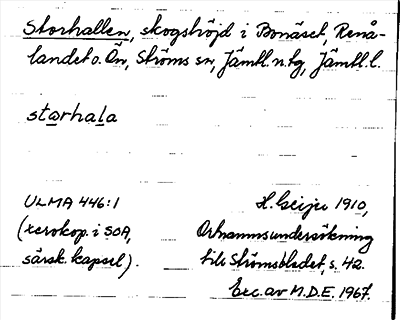 Storhallen, skogshöjd i Bonäset, Renå-
landet o. Ön, Ströms sn, Jämtl. n. tg, Jämtl. l.
storhala
ULMA 446:1 H. Geijer 1910,
(xerokop. i SOA, Ortnamnsundersökning
särsk. kapsel). till Strömsbladet, s. 42.
Exc. av M.D.E. 1967.